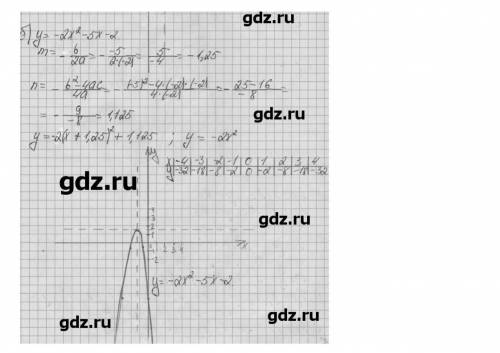 gdz.ru
б) y = -2x² - 5x - 2
m = - b/2a = - -5/2·(-2) = 5/-4 = -1,25
n = - b² - 4ac/4a = - (-5)² - 4·(-2)·(-2)/4·(-2) = - 25 - 16/-8 =
= - 9/-8 = 1,125
y = -2(x + 1,25)² + 1,125 ; y = -2x²
x | -4 | -3 | -2 | -1 | 0 | 1 | 2 | 3 | 4
y | -32 | -18 | -8 | -2 | 0 | -2 | -8 | -18 | -32
gdz.ru
gdz.ru
gdz.ru
y
x
y = -2x² - 5x - 2
gdz.ru
gdz.ru
gdz.ru